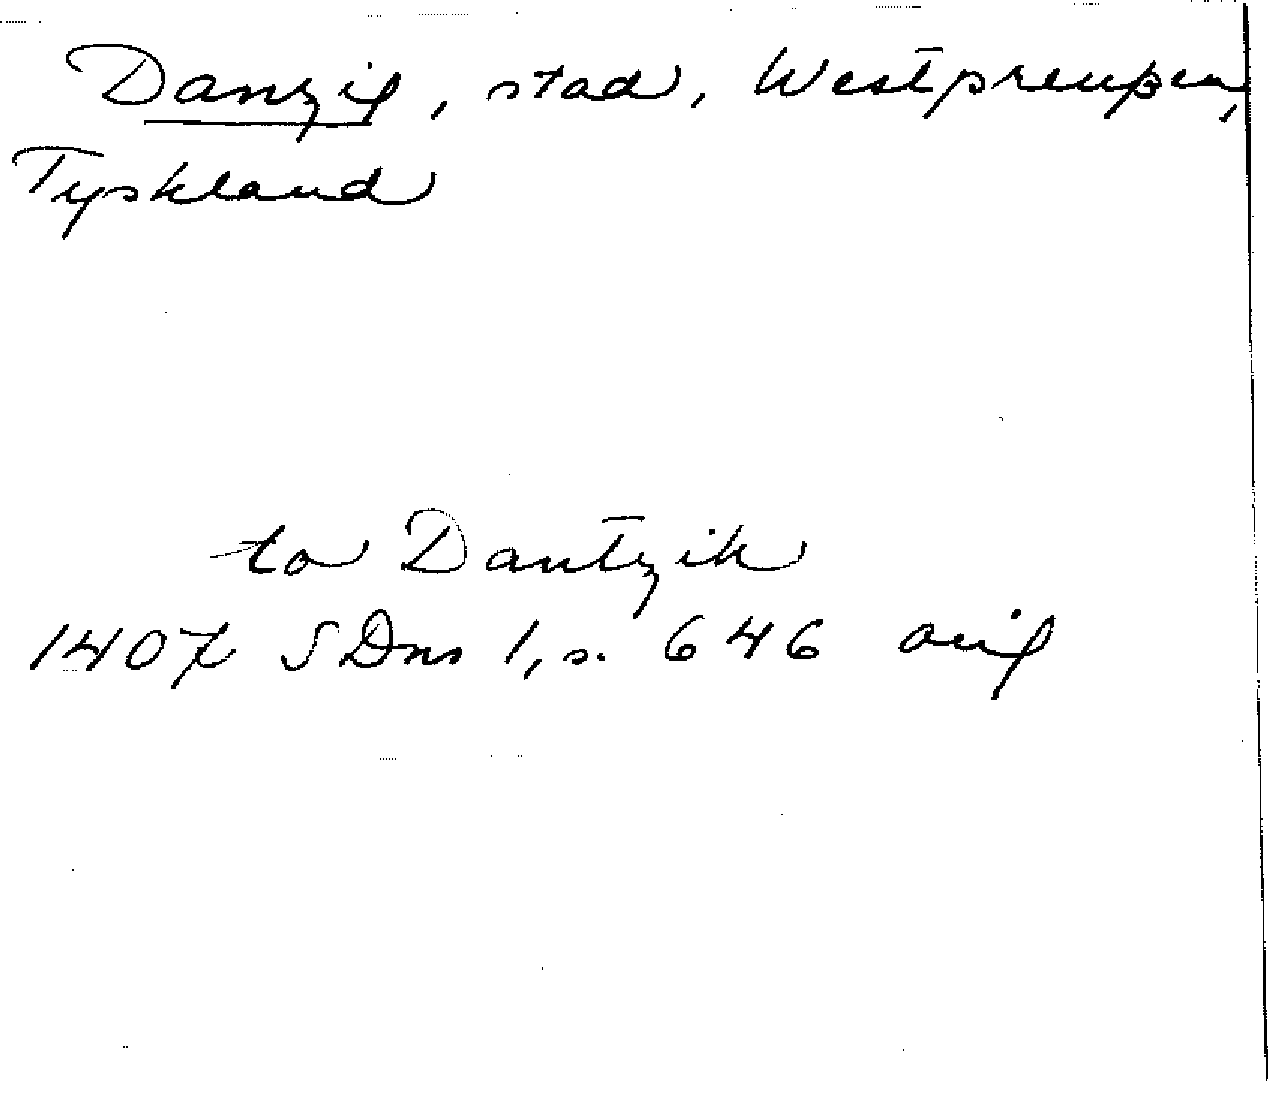 Danzig, stad, Westpreußen,
Tyskland
to Dantzik
1407 SDns 1, s. 646 orig